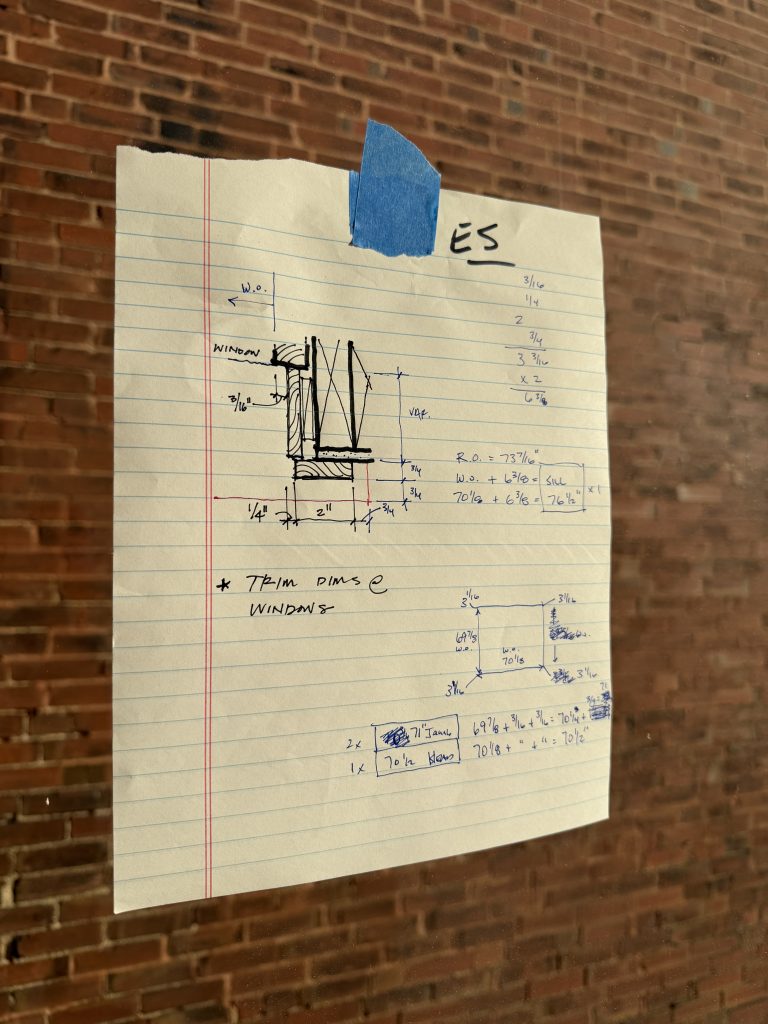 ES
3/16
1/4
2
3/4
3 3/16
x 2
6 3/8
W.O.
WINDOW
3/16"
VAR.
3/4
3/4
1/4"
2"
3/4
R.O. = 73 7/16"
W.O. + 6 3/8 = SILL
70 1/8 + 6 3/8 = 76 1/2" x 1
* TRIM DIMS @
WINDOWS
3 1/16
3 1/16
69 7/8
W.O.
W.O.
70 1/8
W.O.
3 1/16
3 1/16
2x 71" Jamb 69 7/8 + 3/16 + 3/16 = 70 1/4 +
3/4 = 71
1x 70 1/2 Head 70 1/8 + " + " = 70 1/2"